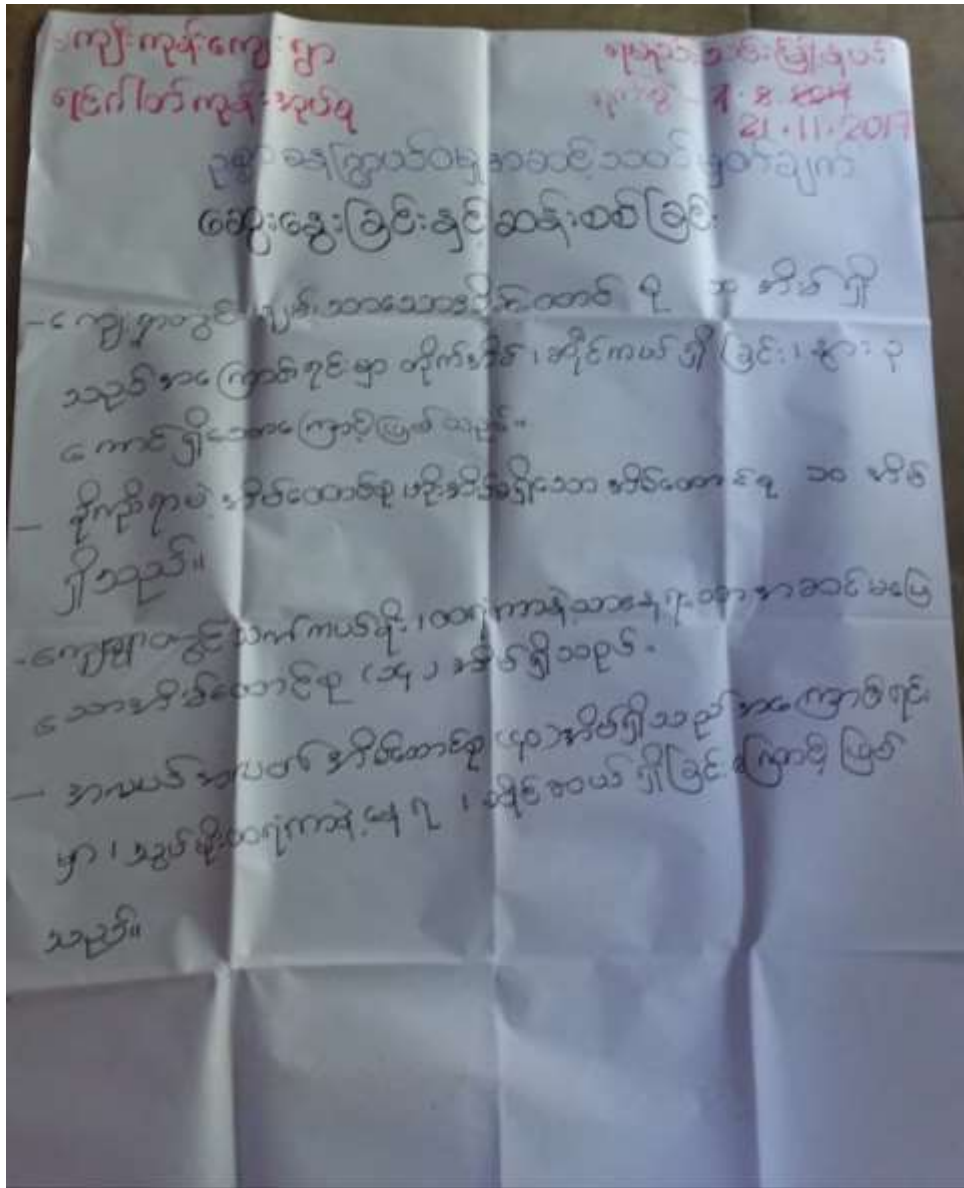 ကျိုးကုန်းကျေးရွာ
ကုန်းအုပ်စု
21.11.2017
ဥစ္စာဓနကြွယ်ဝမှုအဆင့်သတ်မှတ်ချက်
ဆွေးနွေးခြင်းနှင့်ဆန်းစစ်ခြင်း
- ကျေးရွာတွင် ချမ်းသာသောအိမ်ထောင်စု အိမ်ရှိ
သည်အကြောင်းရင်းမှာ တိုက်အိမ်၊ ဆိုင်ကယ်ရှိခြင်း၊ နွား ၃
ကောင်ရှိသောကြောင့်ဖြစ်သည်။
- ခိုကိုးရာမဲ့ အိမ်ထောင်စု ရှိသော အိမ်ထောင်စု ၁၀ အိမ်
ရှိသည်။
- ကျေးရွာတွင်သက်ကယ်မိုး၊ ထရံကာနဲ့သာနေရ အဆင်မပြေ
သောအိမ်ထောင်စု အိမ်ရှိသည်။
- အလယ်အလတ် အိမ်ထောင်စု (၄၀) အိမ်ရှိသည် အကြောင်းရင်း
မှာ၊ သွပ်မိုးထရံကာနဲ့နေရ၊ ဆိုင်ကယ်ရှိခြင်းကြောင့်ဖြစ်
သည်။